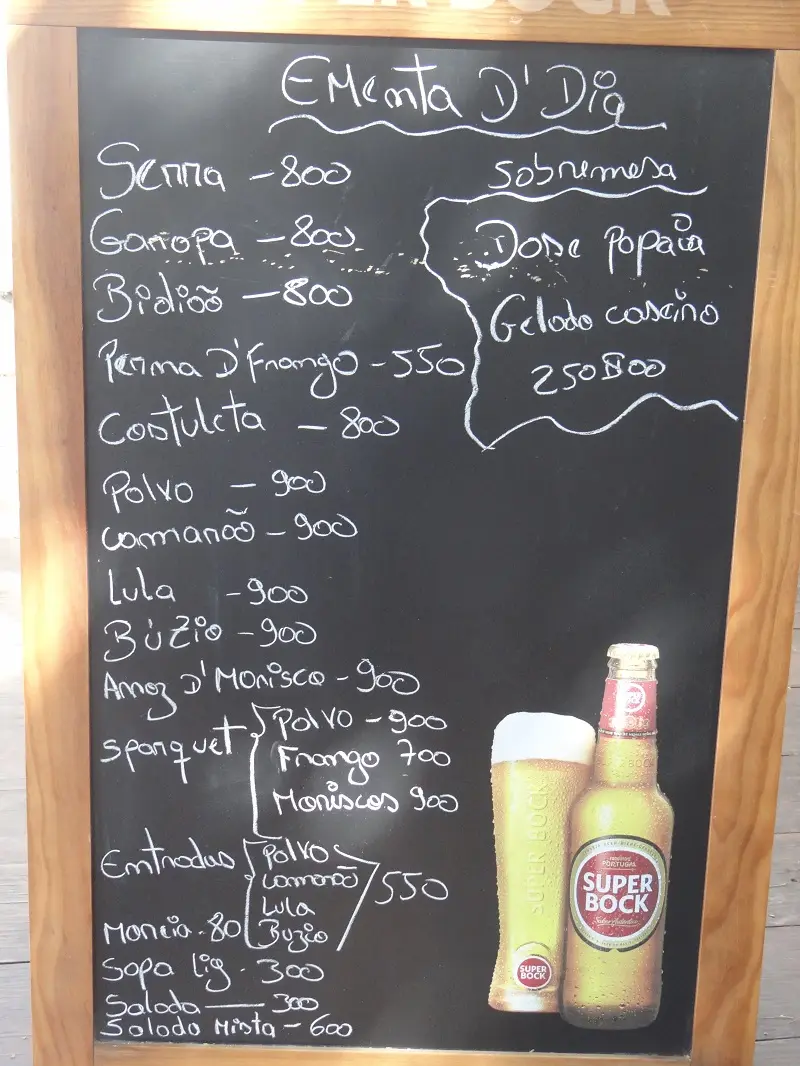 EMenta D'Dia
Serra - 800
Garropa - 800
Bidião - 800
Perna D'Frango - 550
Costuleta - 800
Polvo - 900
Camarão - 900
Lula - 900
Búzio - 900
Arroz D'Marisco - 900
Sparguet
Polvo - 900
Frango 700
Mariscos 900
Entradas
Polvo
Camarão
Lula
Buzio
550
Morcia - 80
Sopa lig - 300
Salada - 300
Salada Mista - 600
Sobremesa
Dose Papaia
Gelado caseiro
250$00
SUPER BOCK
PORTUGAL
SUPER
BOCK
Sabor Autêntico
SUPER
BOCK